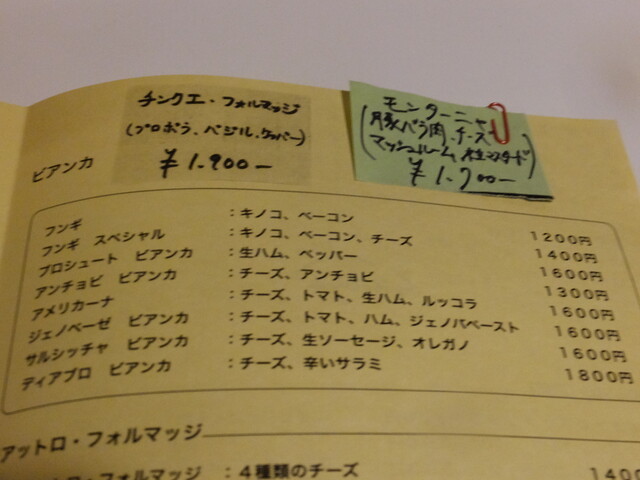 チンクエ・フォルマッジ
(プロボラ、バジル、ケッパー)
¥1.900-
モンターニャ
(豚バラ肉、チーズ
マッシュルーム、粒マスタード)
¥1.700-
ビアンカ
フンギ :キノコ、ベーコン 1200円
フンギ スペシャル :キノコ、ベーコン、チーズ 1400円
プロシュート ビアンカ :生ハム、ペッパー 1600円
アンチョビ ビアンカ :チーズ、アンチョビ 1300円
アメリカーナ :チーズ、トマト、生ハム、ルッコラ 1600円
ジェノベーゼ ビアンカ :チーズ、トマト、ハム、ジェノバペースト 1600円
サルシッチャ ビアンカ :チーズ、生ソーセージ、オレガノ 1600円
ディアブロ ビアンカ :チーズ、辛いサラミ 1800円
アットロ・フォルマッジ
ロ・フォルマッジ :4種類のチーズ 1400